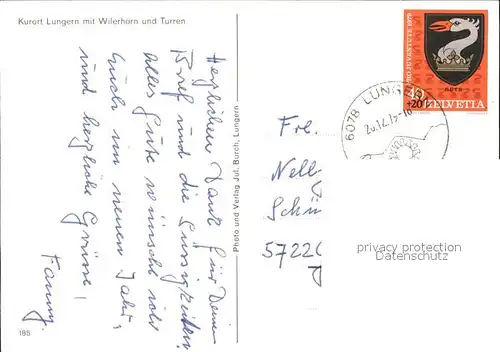 Kurort Lungern mit Wilerhorn und Turren
Herzlichen Dank für Deinen
Brief und die Süssigkeiten.
Alles Gute wünsche ich
Euch im neuen Jahr,
und herzliche Grüsse!
Fanny.
185
Photo und Verlag Jul. Burch, Lungern
PRO JUVENTUTE 1978
40
+20
HELVETIA
6078 LUNGERN
Frl.
Nell
Schü
5722
privacy protection
for Members